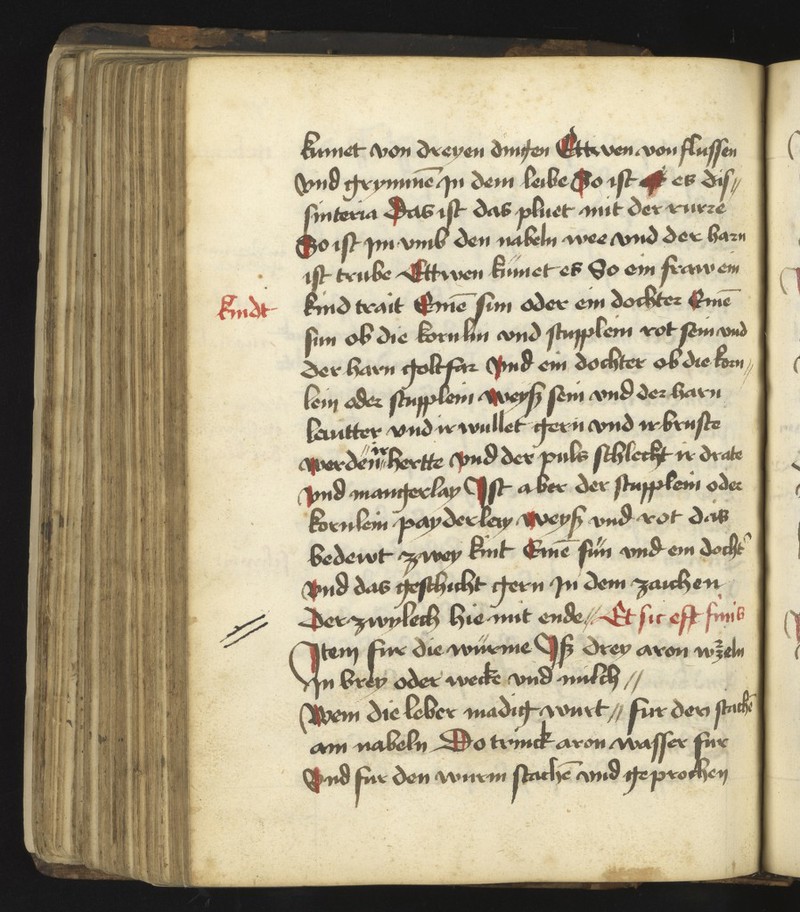 kumet von dreyen dingen Ettwen von flussen
vnd grymmē In dem leibe So ist es dis⸗
sinteria Das ist das pluet mit der rurre
So ist Im vmb den nabeln wee vnd der harn
ist trube Ettwen kümet es So ein fraw ein
kindt
kind trait Einē sun oder ein dochter Einē
sun ob die kornlin vnd stupplein rot sein vnd
der harn goltfar Vnd ein dochter ob die korn⸗
lein oder stupplein weyß sein vnd der harn
leutter vnd ir wullet gern vnd ir bruste
werden hertte Vnd der puls schlecht ir drate
vnd mangerlay Ist aber der stupplein oder
kornlein payderley weyß vnd rot das
bedewt zwey kint Einē sün vnd ein docht'
vnd das geschicht gern In dem zaichen
Der zwylech hie mit ende// Et sic est finis
Item fur die würme Iß drey aron wrzeln
In brey oder wecke vnd milch //
Wem die leber madig wurt // fur den stachē
am nabeln Do trinck aron wasser fur
Vnd fur den wurm stachē vnd geprochen